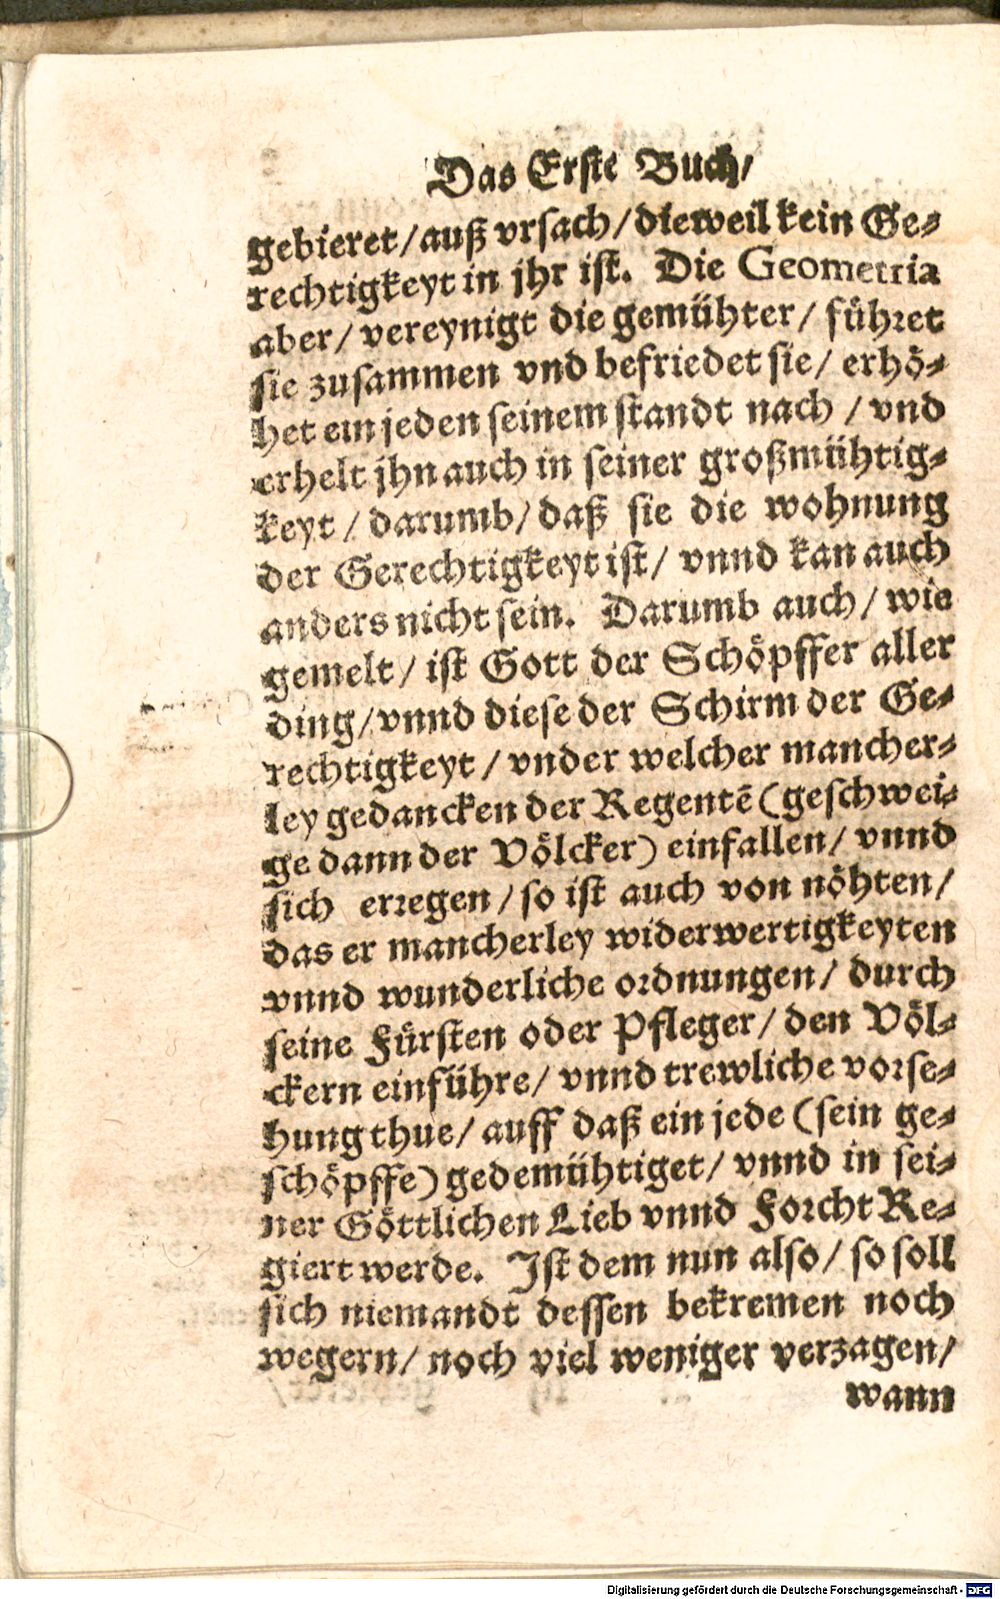 Das Erste Buch/
gebieret/auß vrsach/dieweil kein Ge-
rechtigkeyt in jhr ist. Die Geometria
aber/ vereynigt die gemühter/ führet
sie zusammen vnd befriedet sie/ erhö-
het ein jeden seinem standt nach / vnd
erhelt jhn auch in seiner großmühtig-
keyt / darumb/ daß sie die wohnung
der Gerechtigkeyt ist/ vnnd kan auch
anders nicht sein. Darumb auch/ wie
gemelt/ ist Gott der Schöpffer aller
ding/vnnd diese der Schirm der Ge-
rechtigkeyt / vnder welcher mancher-
ley gedancken der Regentē (geschwei-
ge dann der Völcker) einfallen/ vnnd
sich erregen/ so ist auch von nöhten/
das er mancherley widerwertigkeyten
vnnd wunderliche ordnungen/ durch
seine Fürsten oder Pfleger/ den Völ-
ckern einführe/ vnnd trewliche vorse-
hung thue/ auff daß ein jede (sein ge-
schöpffe) gedemühtiget/ vnnd in sei-
ner Göttlichen Lieb vnnd Forcht Re-
giert werde. Ist dem nun also/ so soll
sich niemandt dessen bekremen noch
wegern/ noch viel weniger verzagen/
wann
Digitalisierung gefördert durch die Deutsche Forschungsgemeinschaft - DFG